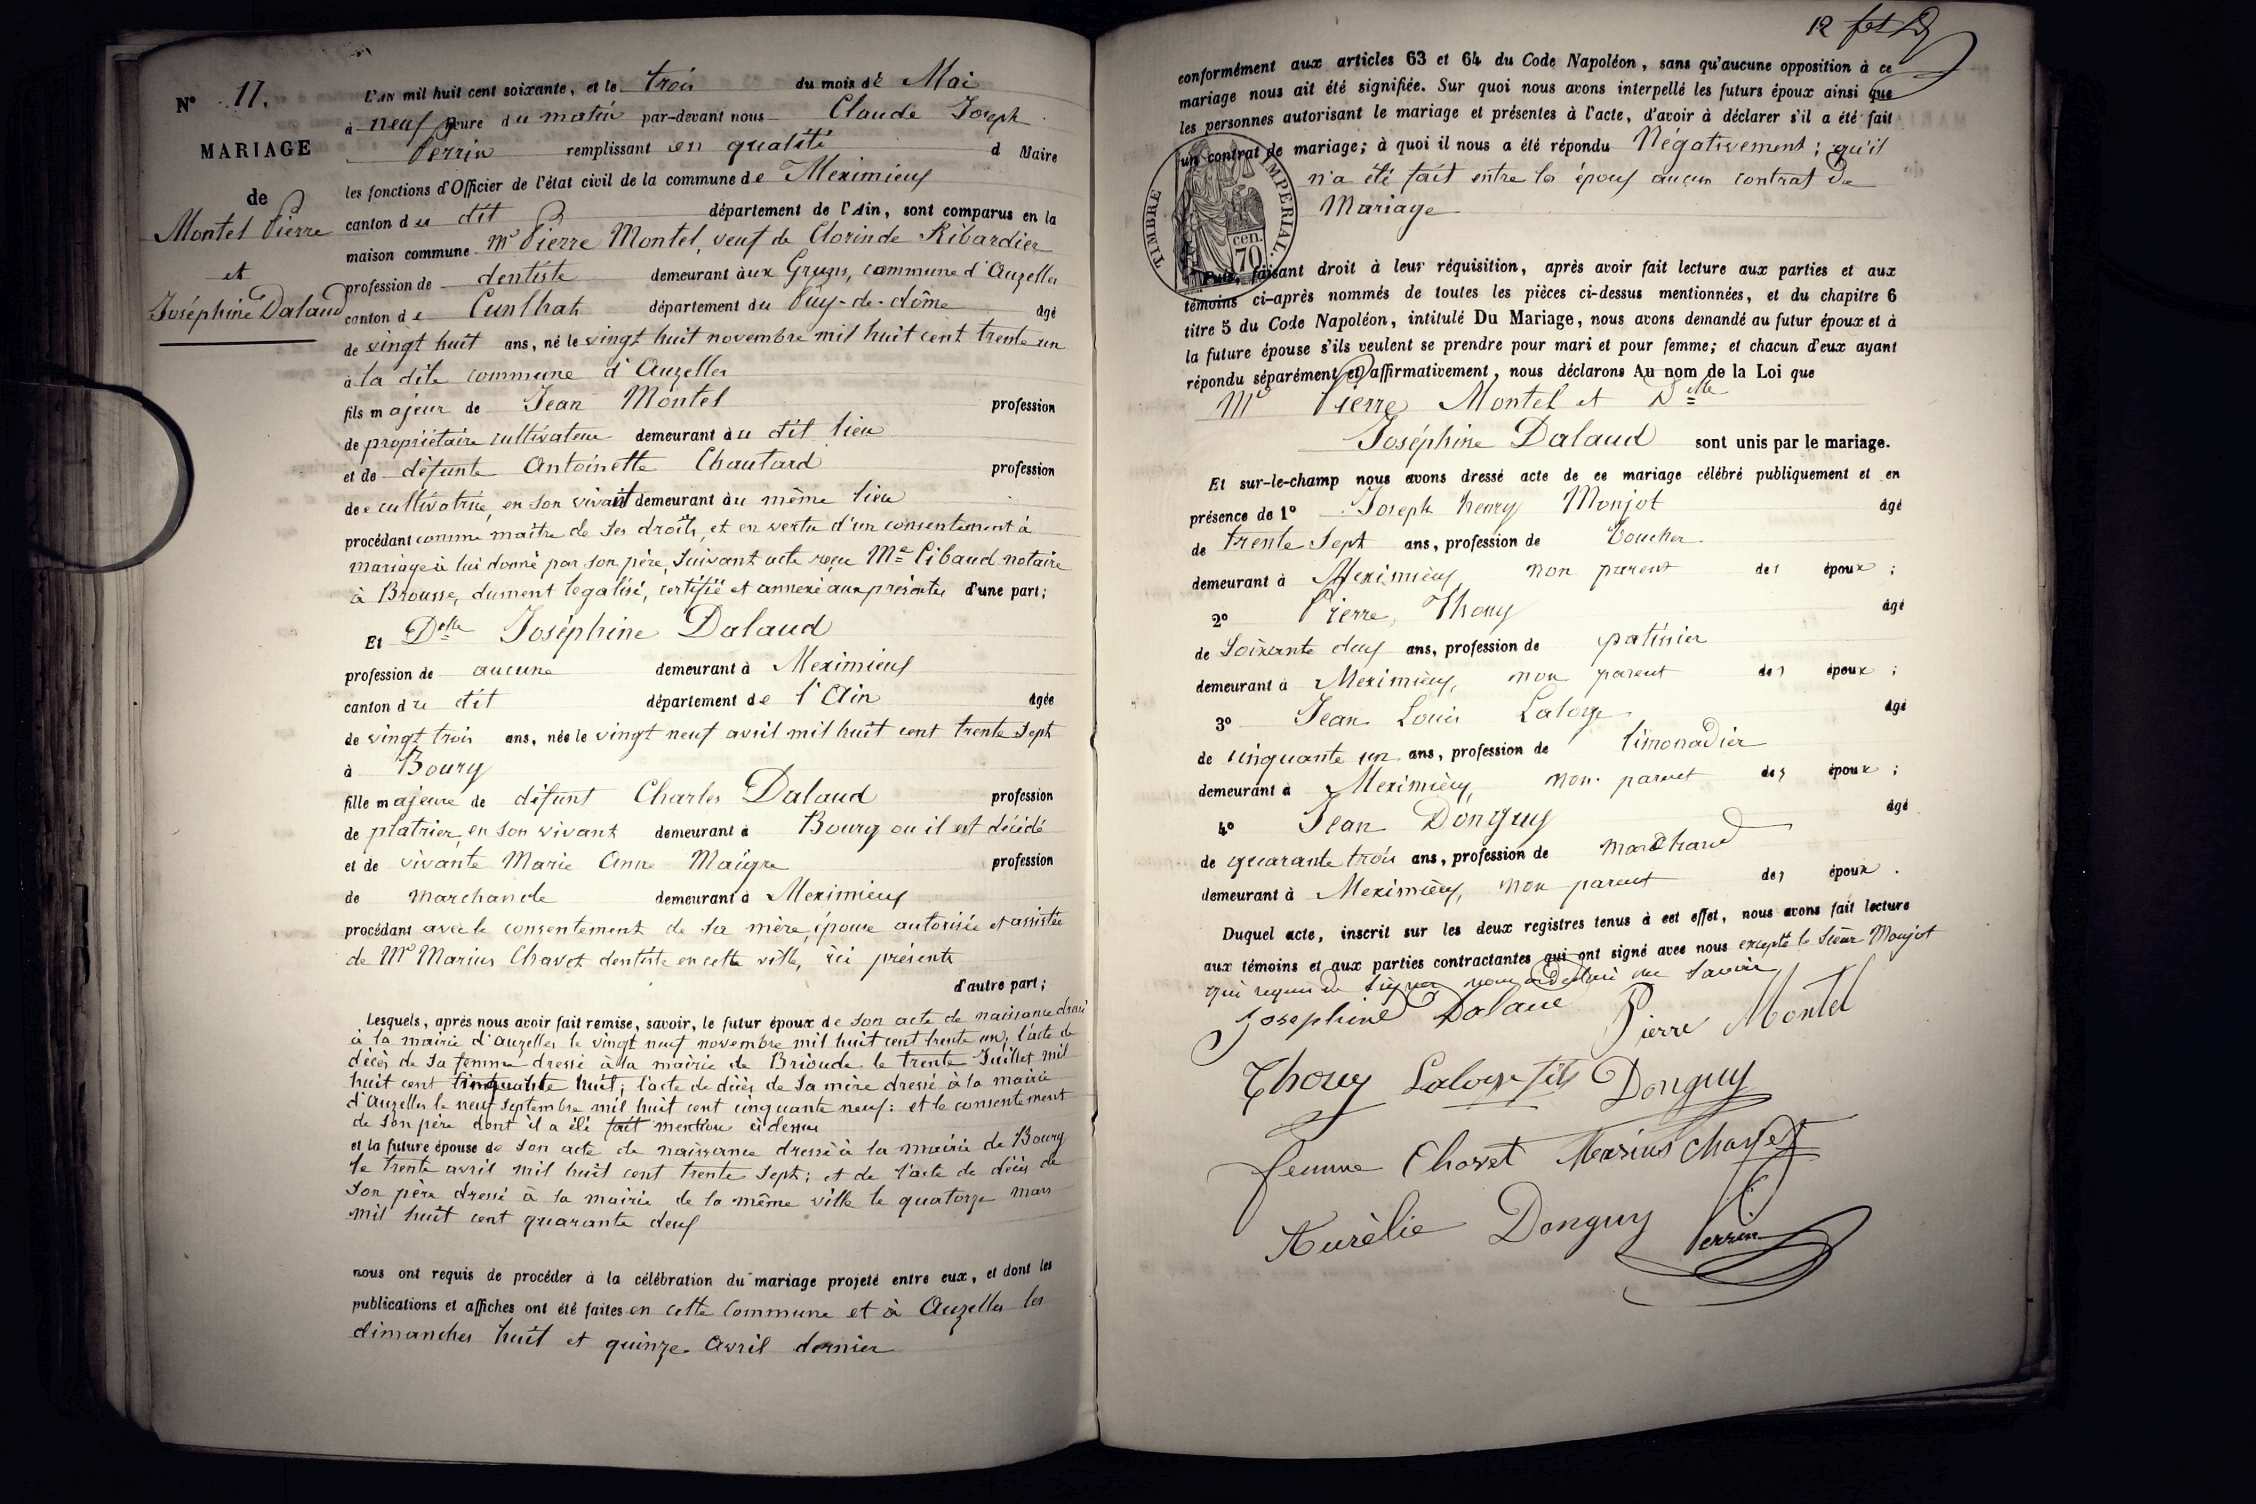 N° 17.
MARIAGE
de
Montel Pierre
et
Joséphine Dalaud
L'AN mil huit cent soixante, et le trois du mois de Mai
à neuf heure du matin par-devant nous Claude Joseph
Perrin remplissant en qualité d Maire
les fonctions d'Officier de l'état civil de la commune de Meximieux
canton du dit département de l'Ain, sont comparus en la
maison commune Mr Pierre Montel, veuf de Clorinde Ribardier
profession de dentiste demeurant aux Gruns, commune d'Auzelles
canton de Cunlhat département du Puy-de-dôme âgé
de vingt huit ans, né le vingt huit novembre mil huit cent trente un
à la dite commune d'Auzelles
fils majeur de Jean Montel profession
de propriétaire cultivateur demeurant au dit lieu
et de défunte Antoinette Chautard profession
de cultivatrice, en son vivant demeurant au même lieu
procédant comme maître de ses droits, et en vertu d'un consentement à
mariage à lui donné par son père, suivant acte reçu Me Pibaud notaire
à Brousse, dument légalisé, certifié et annexé aux présentes d'une part;
Et Delle Joséphine Dalaud
profession de aucune demeurant à Meximieux
canton du dit département de l'Ain âgée
de vingt trois ans, née le vingt neuf avril mil huit cent trente sept
à Bourg
fille majeure de défunt Charles Dalaud profession
de platrier, en son vivant demeurant à Bourg ou il est décédé
et de vivante Marie Anne Maigre profession
de marchande demeurant à Meximieux
procédant avec le consentement de sa mère, épouse autorisée et assistée
de Mr Marius Chavet dentiste en cette ville, ici présents
d'autre part;
Lesquels, après nous avoir fait remise, savoir, le futur époux de son acte de naissance dressé
à la mairie d'auzelles le vingt neuf novembre mil huit cent trente un; l'acte de
décès de sa femme dressé à la mairie de Brioude le trente Juillet mil
huit cent cinquante huit; l'acte de décès de sa mère dressé à la mairie
d'Auzelles le neuf septembre mil huit cent cinquante neuf: et le consentement
de son père dont il a été fait mention ci dessus
et la future épouse de son acte de naissance dressé à la mairie de Bourg
le trente avril mil huit cent trente sept; et de l'acte de décès de
son père dressé à la mairie de la même ville le quatorze mars
mil huit cent quarante deux
nous ont requis de procéder à la célébration du mariage projeté entre eux, et dont les
publications et affiches ont été faites en cette Commune et à Auzelles les
dimanches huit et quinze avril dernier
12
conformément aux articles 63 et 64 du Code Napoléon, sans qu'aucune opposition à ce
mariage nous ait été signifiée. Sur quoi nous avons interpellé les futurs époux ainsi que
les personnes autorisant le mariage et présentes à l'acte, d'avoir à déclarer s'il a été fait
un contrat de mariage; à quoi il nous a été répondu Négativement; qu'il
n'a été fait entre les époux aucun contrat de
Mariage
TIMBRE IMPERIAL
70 cen.
Puis, faisant droit à leur réquisition, après avoir fait lecture aux parties et aux
témoins ci-après nommés de toutes les pièces ci-dessus mentionnées, et du chapitre 6
titre 5 du Code Napoléon, intitulé Du Mariage, nous avons demandé au futur époux et à
la future épouse s'ils veulent se prendre pour mari et pour femme; et chacun d'eux ayant
répondu séparément et affirmativement, nous déclarons Au nom de la Loi que
Mr Pierre Montel et Delle
Joséphine Dalaud sont unis par le mariage.
Et sur-le-champ nous avons dressé acte de ce mariage célébré publiquement et en
présence de 1° Joseph henry Monjot âgé
de trente sept ans, profession de boucher
demeurant à Meximieux, non parent des époux;
2° Pierre Thouy âgé
de soixante deux ans, profession de patissier
demeurant à Meximieux, non parent des époux;
3° Jean Louis Laloge âgé
de cinquante un ans, profession de limonadier
demeurant à Meximieux, non parent des époux;
4° Jean Donguy âgé
de quarante trois ans, profession de marchand
demeurant à Meximieux, non parent des époux.
Duquel acte, inscrit sur les deux registres tenus à cet effet, nous avons fait lecture
aux témoins et aux parties contractantes qui ont signé avec nous excepté le sieur Monjot
qui requis de signer nous a déclaré ne savoir
Josephine Dalaud Pierre Montel
Thouy Laloge fils Donguy
femme Chavet Marius Chavet
Aurèlie Donguy Perrin